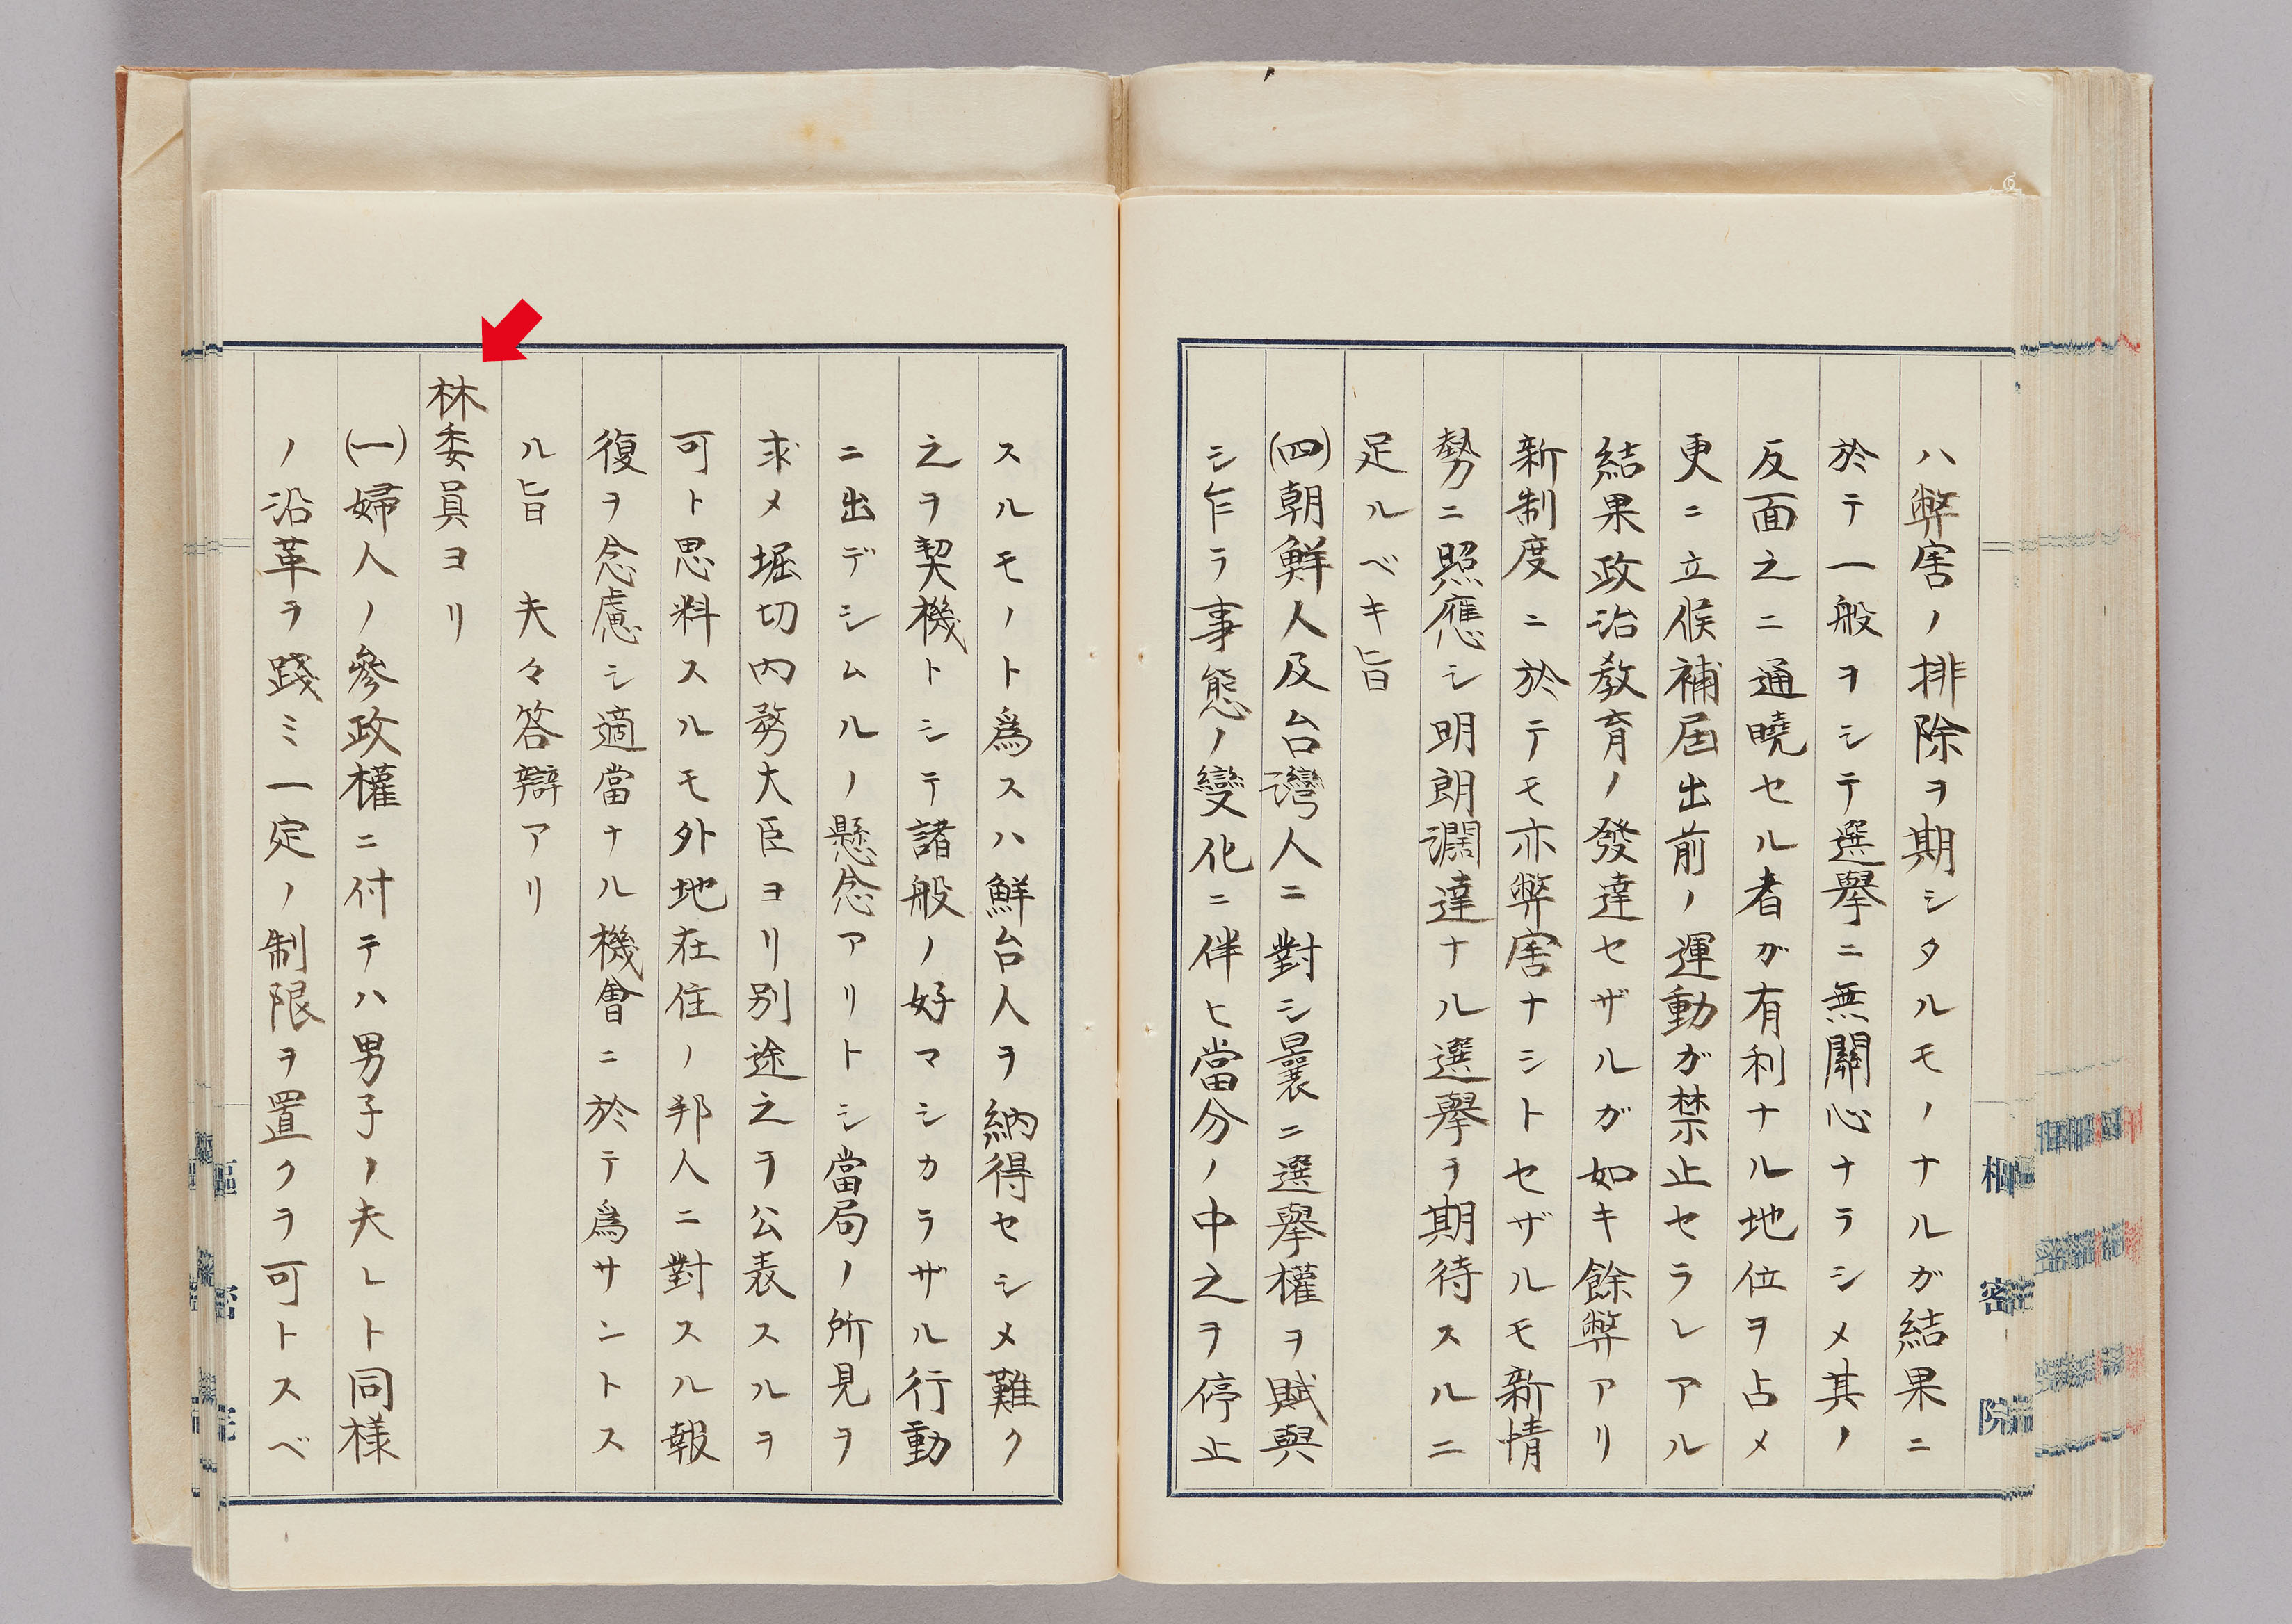 ハ弊害ノ排除ヲ期シタルモノナルガ結果ニ
於テ一般ヲシテ選擧ニ無關心ナラシメ其ノ
反面之ニ通曉セル者ガ有利ナル地位ヲ占メ
更ニ立候補屆出前ノ運動ガ禁止セラレアル
結果政治敎育ノ發達セザルガ如キ餘弊アリ
新制度ニ於テモ亦弊害ナシトセザルモ新情
勢ニ照應シ明朗濶達ナル選擧ヲ期待スルニ
足ルベキ旨
㈣朝鮮人及台灣人ニ對シ曩ニ選擧權ヲ賦與
シ乍ラ事態ノ變化ニ伴ヒ當分ノ中之ヲ停止
スルモノト爲スハ鮮台人ヲ納得セシメ難ク
之ヲ契機トシテ諸般ノ好マシカラザル行動
ニ出デシムルノ懸念アリトシ當局ノ所見ヲ
求メ堀切内務大臣ヨリ別途之ヲ公表スルヲ
可ト思料スルモ外地在住ノ邦人ニ對スル報
復ヲ念慮シ適當ナル機會ニ於テ爲サントス
ル旨　夫々答辯アリ
林委員ヨリ
㈠婦人ノ參政權ニ付テハ男子ノ夫レト同様
ノ沿革ヲ踐ミ一定ノ制限ヲ置クヲ可トスベ
樞密院